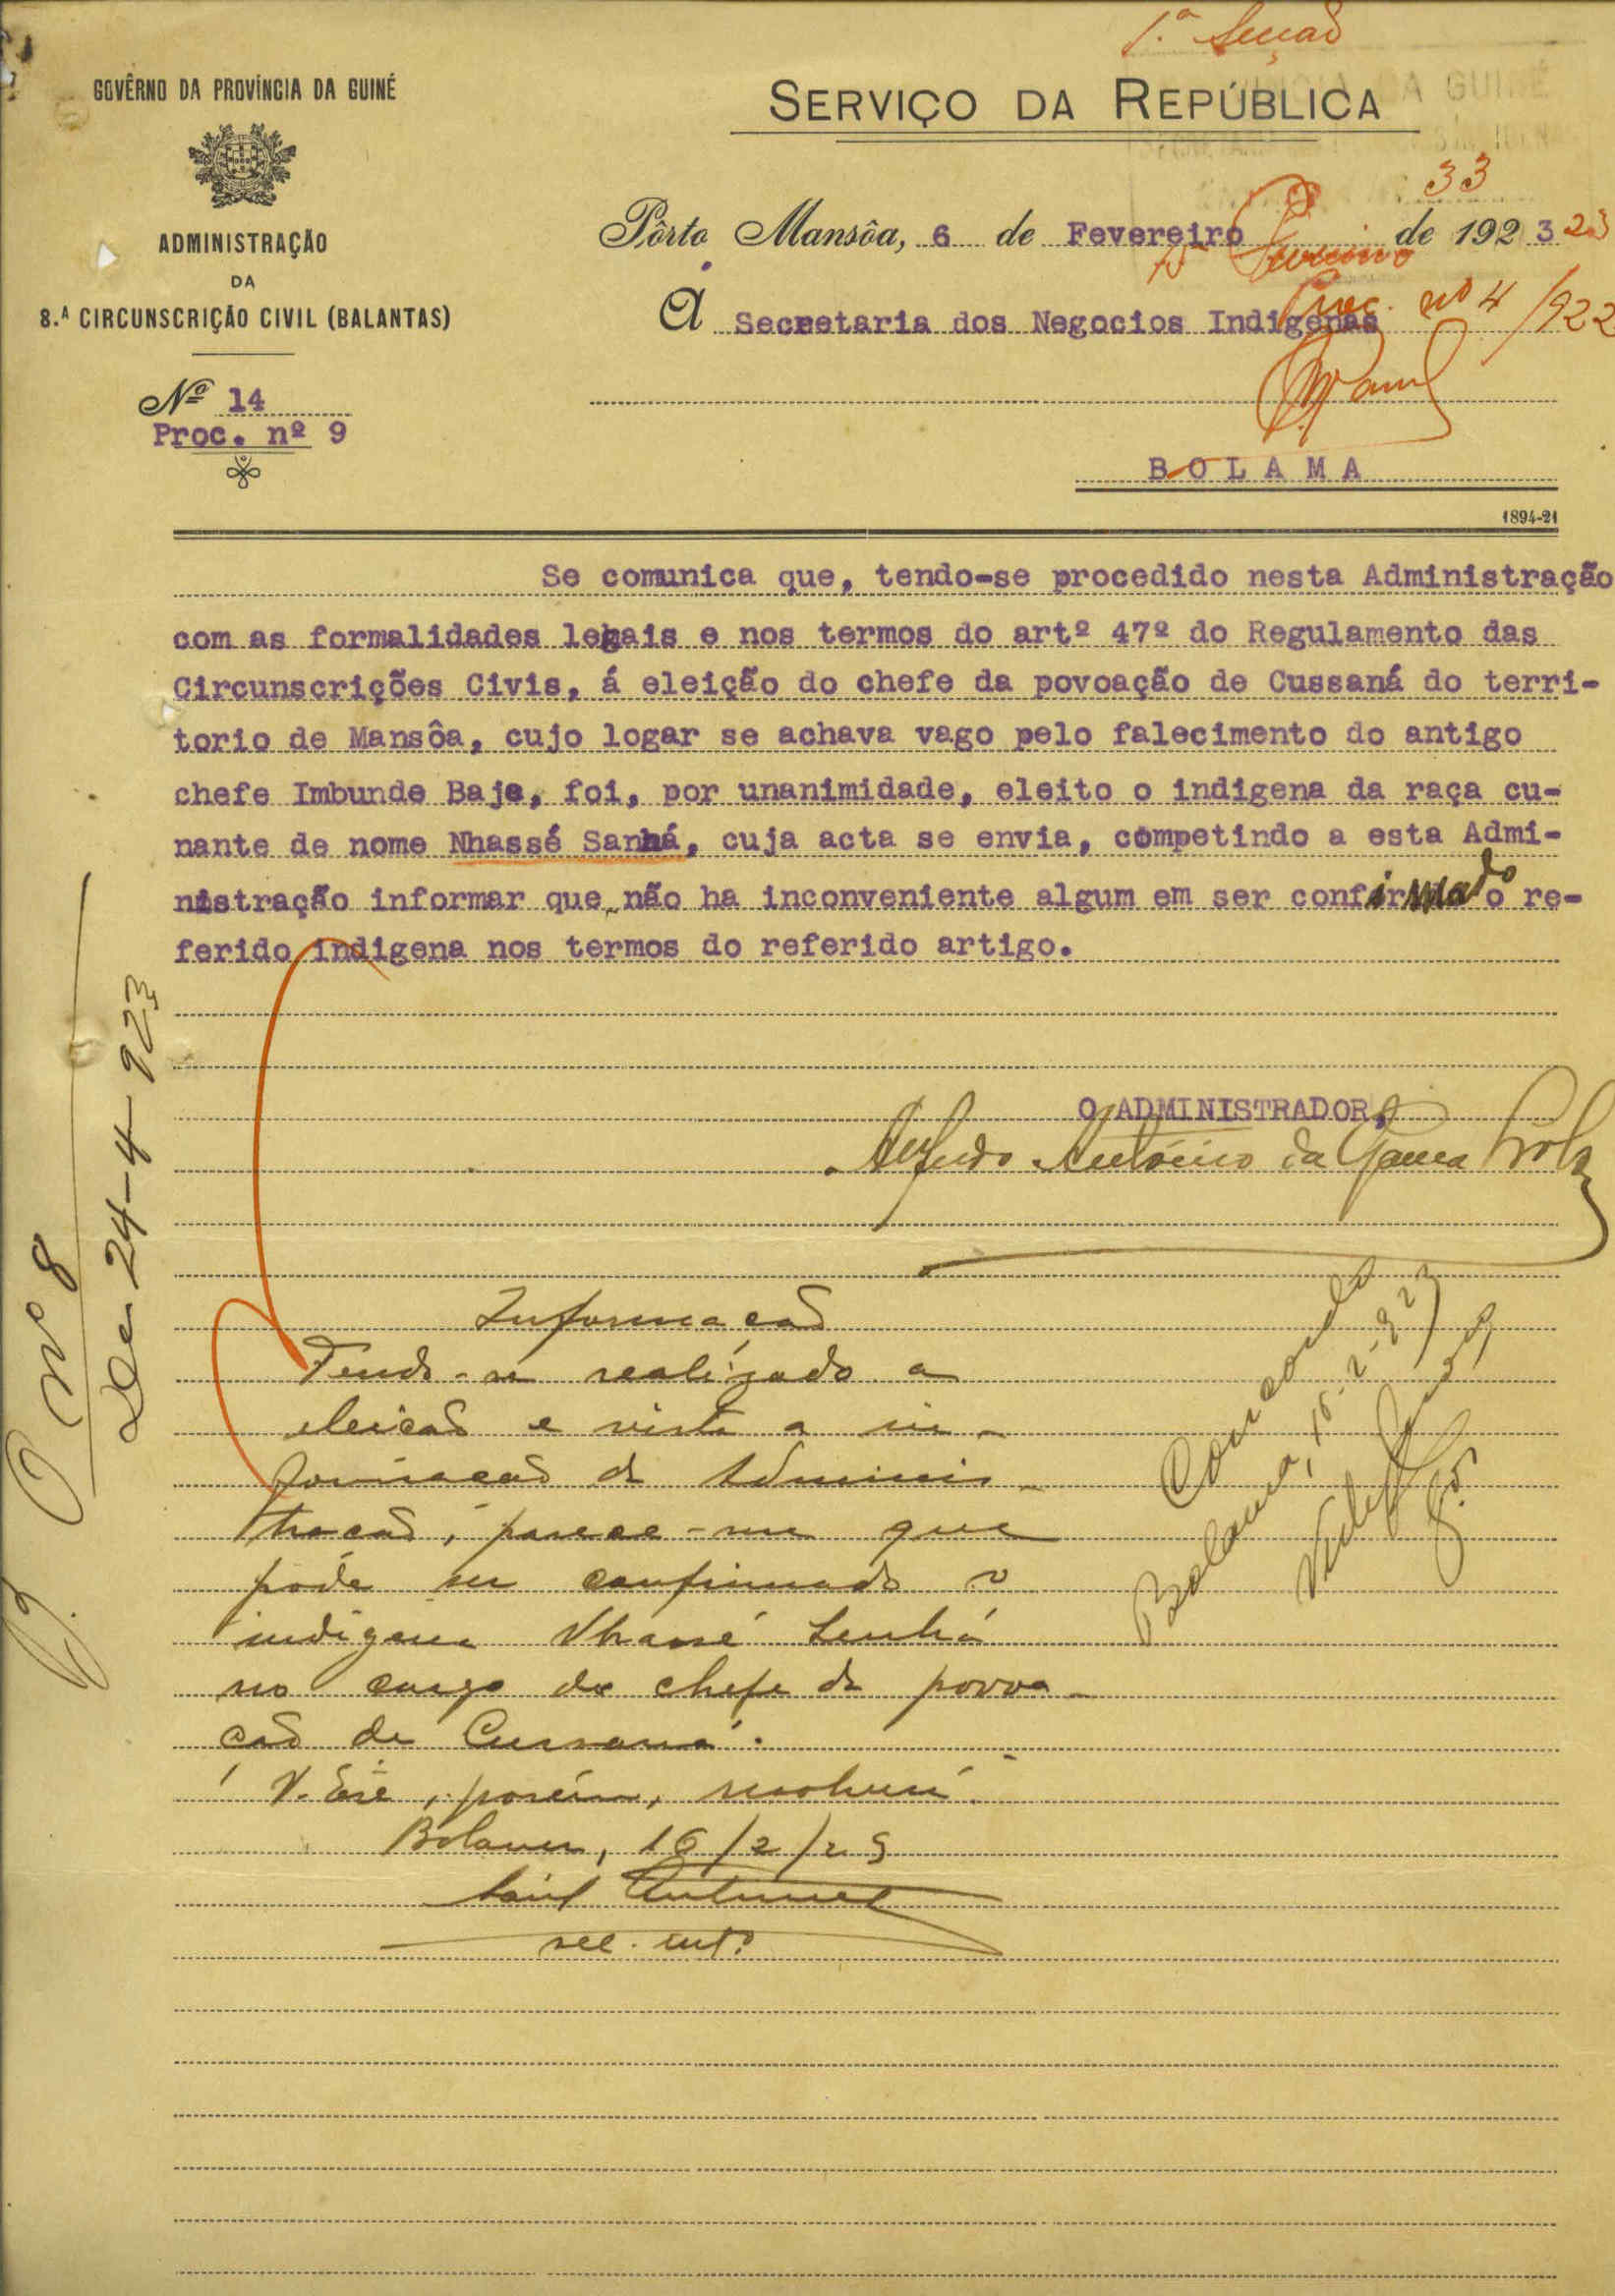 1.ª Secção
GOVÊRNO DA PROVÍNCIA DA GUINÉ
SERVIÇO DA REPÚBLICA
DA GUINÉ
33
Pôrto Mansôa, 6 de Fevereiro de 1923
23
ADMINISTRAÇÃO
DA
8.ª CIRCUNSCRIÇÃO CIVIL (BALANTAS)
Á Secretaria dos Negocios Indigenas
Proc. nº 4/922
Nº 14
Proc. nº 9
BOLAMA
1894-21
Se comunica que, tendo-se procedido nesta Administração
com as formalidades legais e nos termos do artº 47º do Regulamento das
Circunscrições Civis, á eleição do chefe da povoação de Cussaná do terri-
torio de Mansôa, cujo logar se achava vago pelo falecimento do antigo
chefe Imbunde Baje, foi, por unanimidade, eleito o indigena da raça cu-
nante de nome Nhassé Sanhá, cuja acta se envia, competindo a esta Admi-
nistração informar que não ha inconveniente algum em ser confirmado o re-
ferido indigena nos termos do referido artigo.
O ADMINISTRADOR,
Alfredo António da Gama
Informação
Tendo-se realizado a
eleição e vista a in-
formação da Adminis-
tração, parece-me que
póde ser confirmado o
indigena Nhassé Senhá
no cargo de chefe da povoa-
ção de Cussaná.
V. Exª, porém, resolverá.
Bolama, 16/2/23
Antunes
sec. intº
Concordo
Bolama, 16-2-923
B. O. nº 8
De 24-4-923